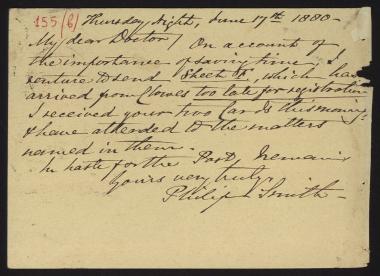 155/(6) Thursday Night, June 17th 1880 -
My dear Doctor / On account of
the importance of saving time, I
venture to send Sheet, which has
arrived from Clowes too late for registration
I received your two Cards this morning
& have attended to the matters
named in them -
In haste for the Post, I remain
Yours very truly,
Philip Smith -